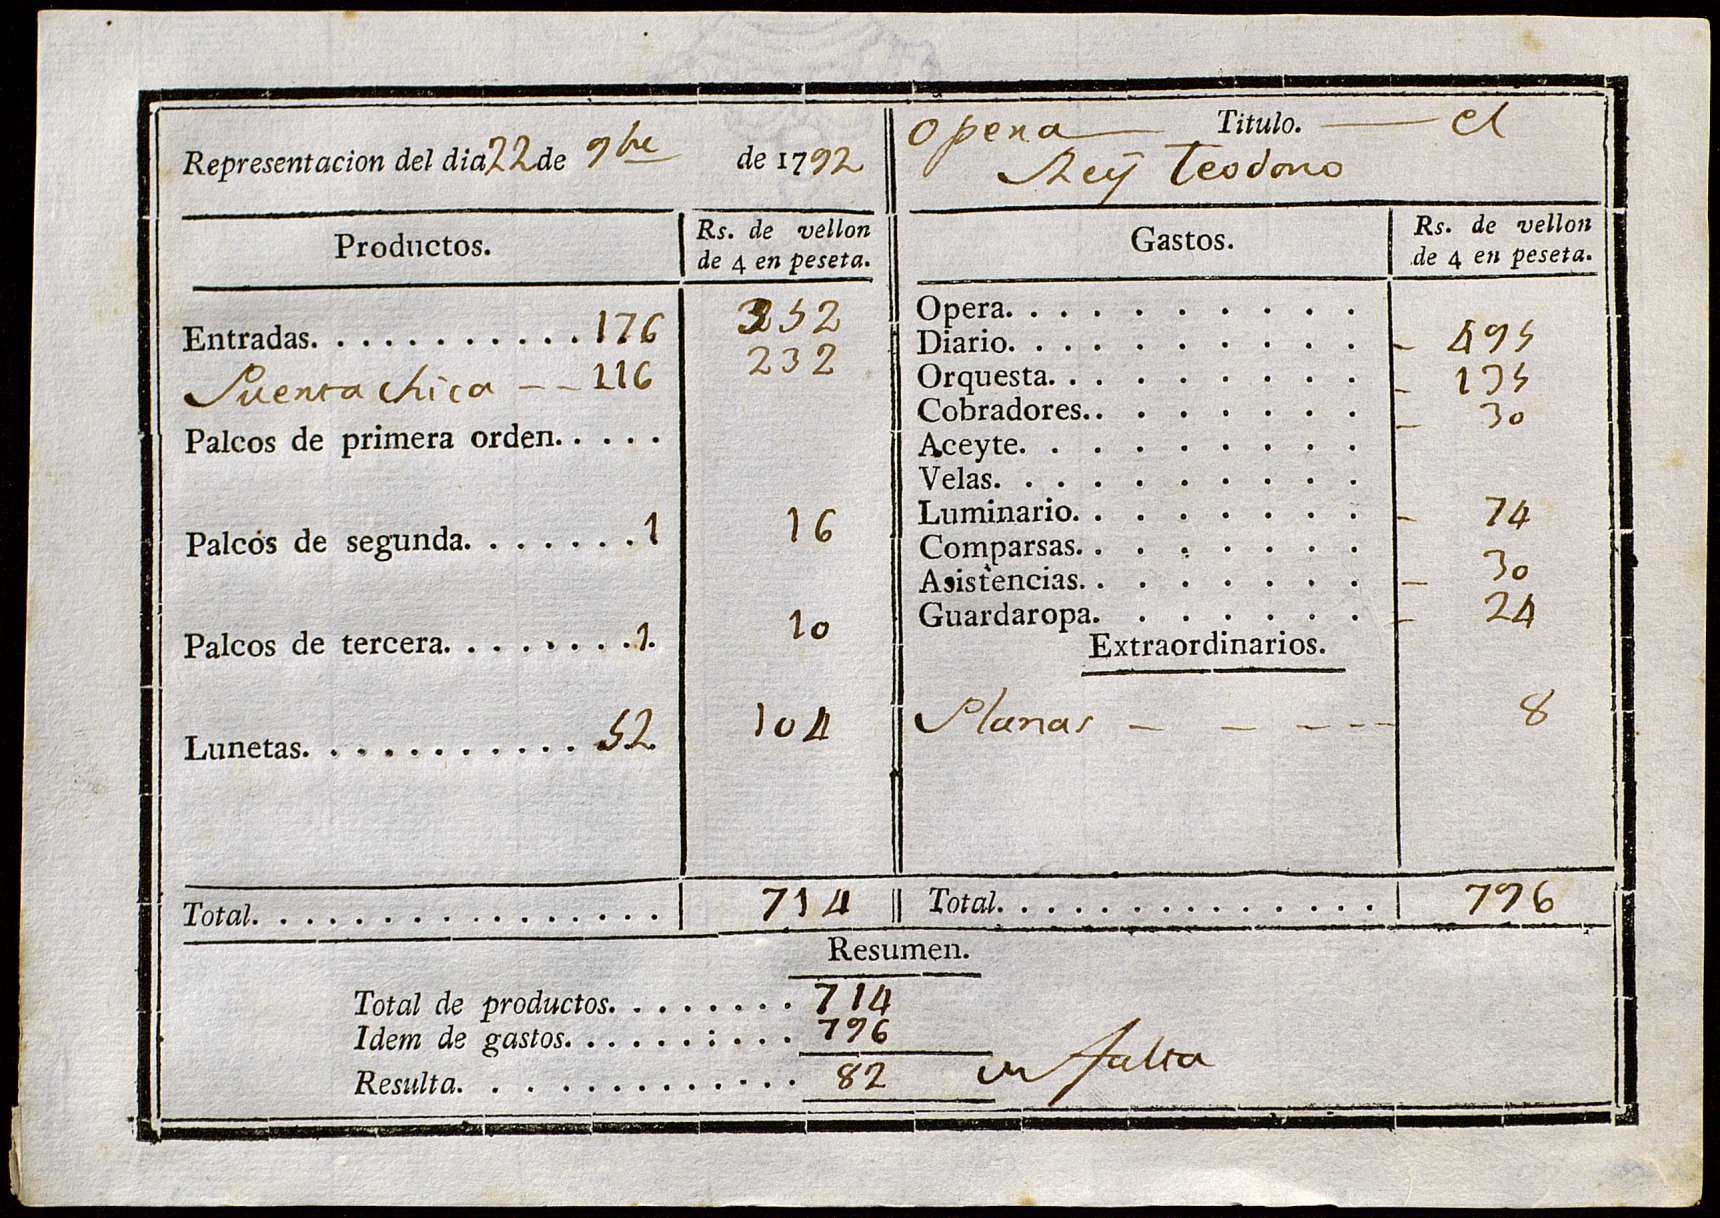 Representacion del dia 22 de 9bre de 1792
Opera Titulo. el
Rey Teodoro
Productos. Rs. de vellon
de 4 en peseta.
Entradas. . . . . . . . . . . 176 352
Puerta chica - - 116 232
Palcos de primera orden. . . . .
Palcos de segunda. . . . . . . 1 16
Palcos de tercera. . . . . . . . 1. 10
Lunetas. . . . . . . . . . . 52 104
Total. . . . . . . . . . . . . . . . . 714
Gastos. Rs. de vellon
de 4 en peseta.
Opera. . . . . . . . . . .
Diario. . . . . . . . . . - 495
Orquesta. . . . . . . . . - 135
Cobradores. . . . . . . . - 30
Aceyte. . . . . . . . . .
Velas. . . . . . . . . . .
Luminario. . . . . . . . - 74
Comparsas. . . . . . . .
Asistencias. . . . . . . . - 30
Guardaropa. . . . . . . - 24
Extraordinarios.
Planas - - - - - 8
Total. . . . . . . . . . . . . . 796
Resumen.
Total de productos. . . . . . . . 714
Idem de gastos. . . . . . : . . . 796
Resulta. . . . . . . . . . . . . 82 en falta